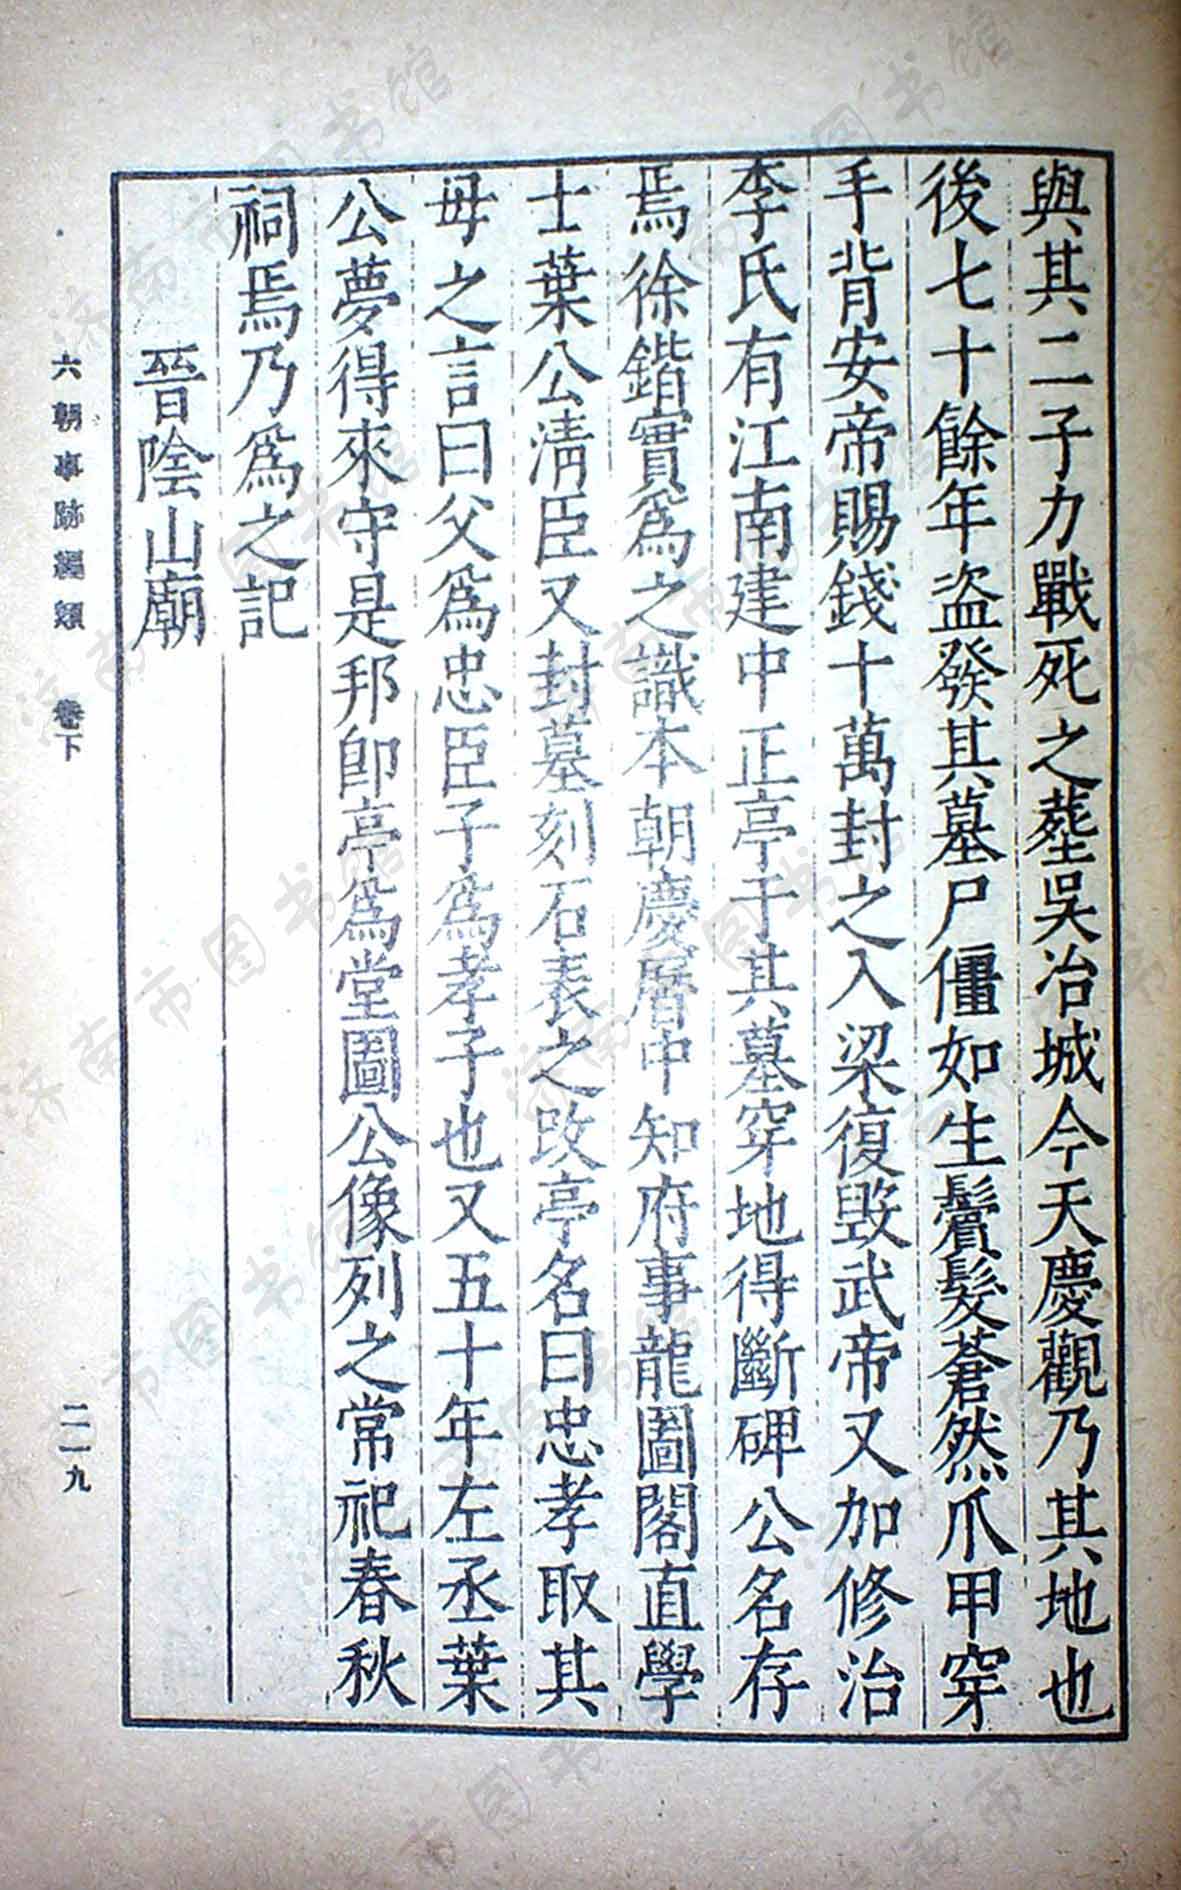 與其二子力戰死之葬吳冶城今天慶觀乃其地也
後七十餘年盜發其墓尸僵如生鬢髮蒼然爪甲穿
手背安帝賜錢十萬封之入梁復毀武帝又加修治
李氏有江南建中正亭于其墓穿地得斷碑公名存
焉徐鍇實爲之識本朝慶曆中知府事龍圖閣直學
士葉公清臣又封墓刻石表之改亭名曰忠孝取其
母之言曰父爲忠臣子爲孝子也又五十年左丞葉
公夢得來守是邦卽亭爲堂圖公像列之常祀春秋
祠焉乃爲之記
晉陰山廟
六朝事跡編類 卷下
二一九
济南市图书馆